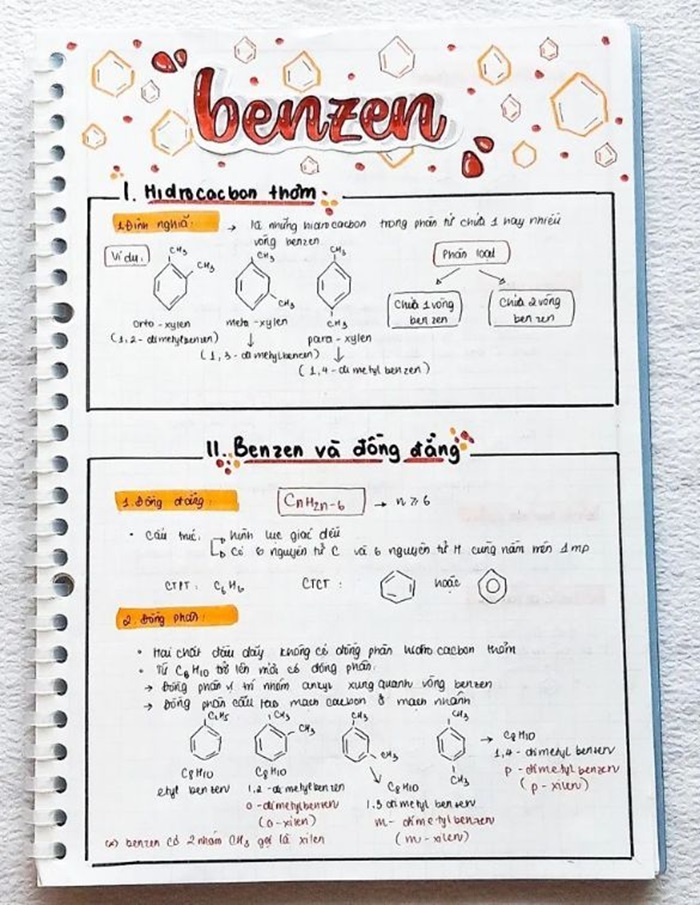 benzen
I. Hidrocacbon thơm
1. Định nghĩa: → là những hidrocacbon trong phân tử chứa 1 hay nhiều
vòng benzen
Ví dụ:
CH₃
CH₃
CH₃
CH₃
CH₃
CH₃
orto - xylen
meta - xylen
para - xylen
(1,2 - dimetylbenzen)
(1,3 - dimetylbenzen)
(1,4 - di metyl benzen)
Phân loại
Chứa 1 vòng
benzen
Chứa 2 vòng
benzen
II. Benzen và đồng đẳng
1. Đồng đẳng:
CnH2n-6 → n ≥ 6
• Cấu trúc: hình lục giác đều
Có 6 nguyên tử C và 6 nguyên tử H cùng nằm trên 1 mp
CTPT: C₆H₆
CTCT:
hoặc
2. Đồng phân:
• Hai chất đầu dãy không có đồng phân hidro cacbon thơm
• Từ C₈H10 trở lên mới có đồng phân:
→ Đồng phân vị trí nhóm ankyl xung quanh vòng benzen
→ Đồng phân cấu tạo mạch cacbon ở mạch nhánh
C₂H₅
CH₃
CH₃
CH₃
CH₃
CH₃
CH₃
C8H10
etyl benzen
C8H10
1,2 - di metyl benzen
o - dimetylbenzen
(o - xilen)
C8H10
1.3 dimetyl benzen
m - dimetylbenzen
(m - xilen)
→ C8H10
1,4 - dimetyl benzen
p - dimetyl benzen
(p - xilen)
(*) benzen có 2 nhóm CH₃ gọi là xilen